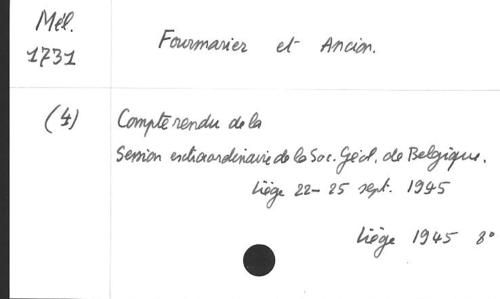 Mél.
1731
Fourmarier et Ancion.
(4)
Compte rendu de la
Session extraordinaire de la Soc. Géol. de Belgique.
Liège 22-25 sept. 1945
Liège 1945 8°